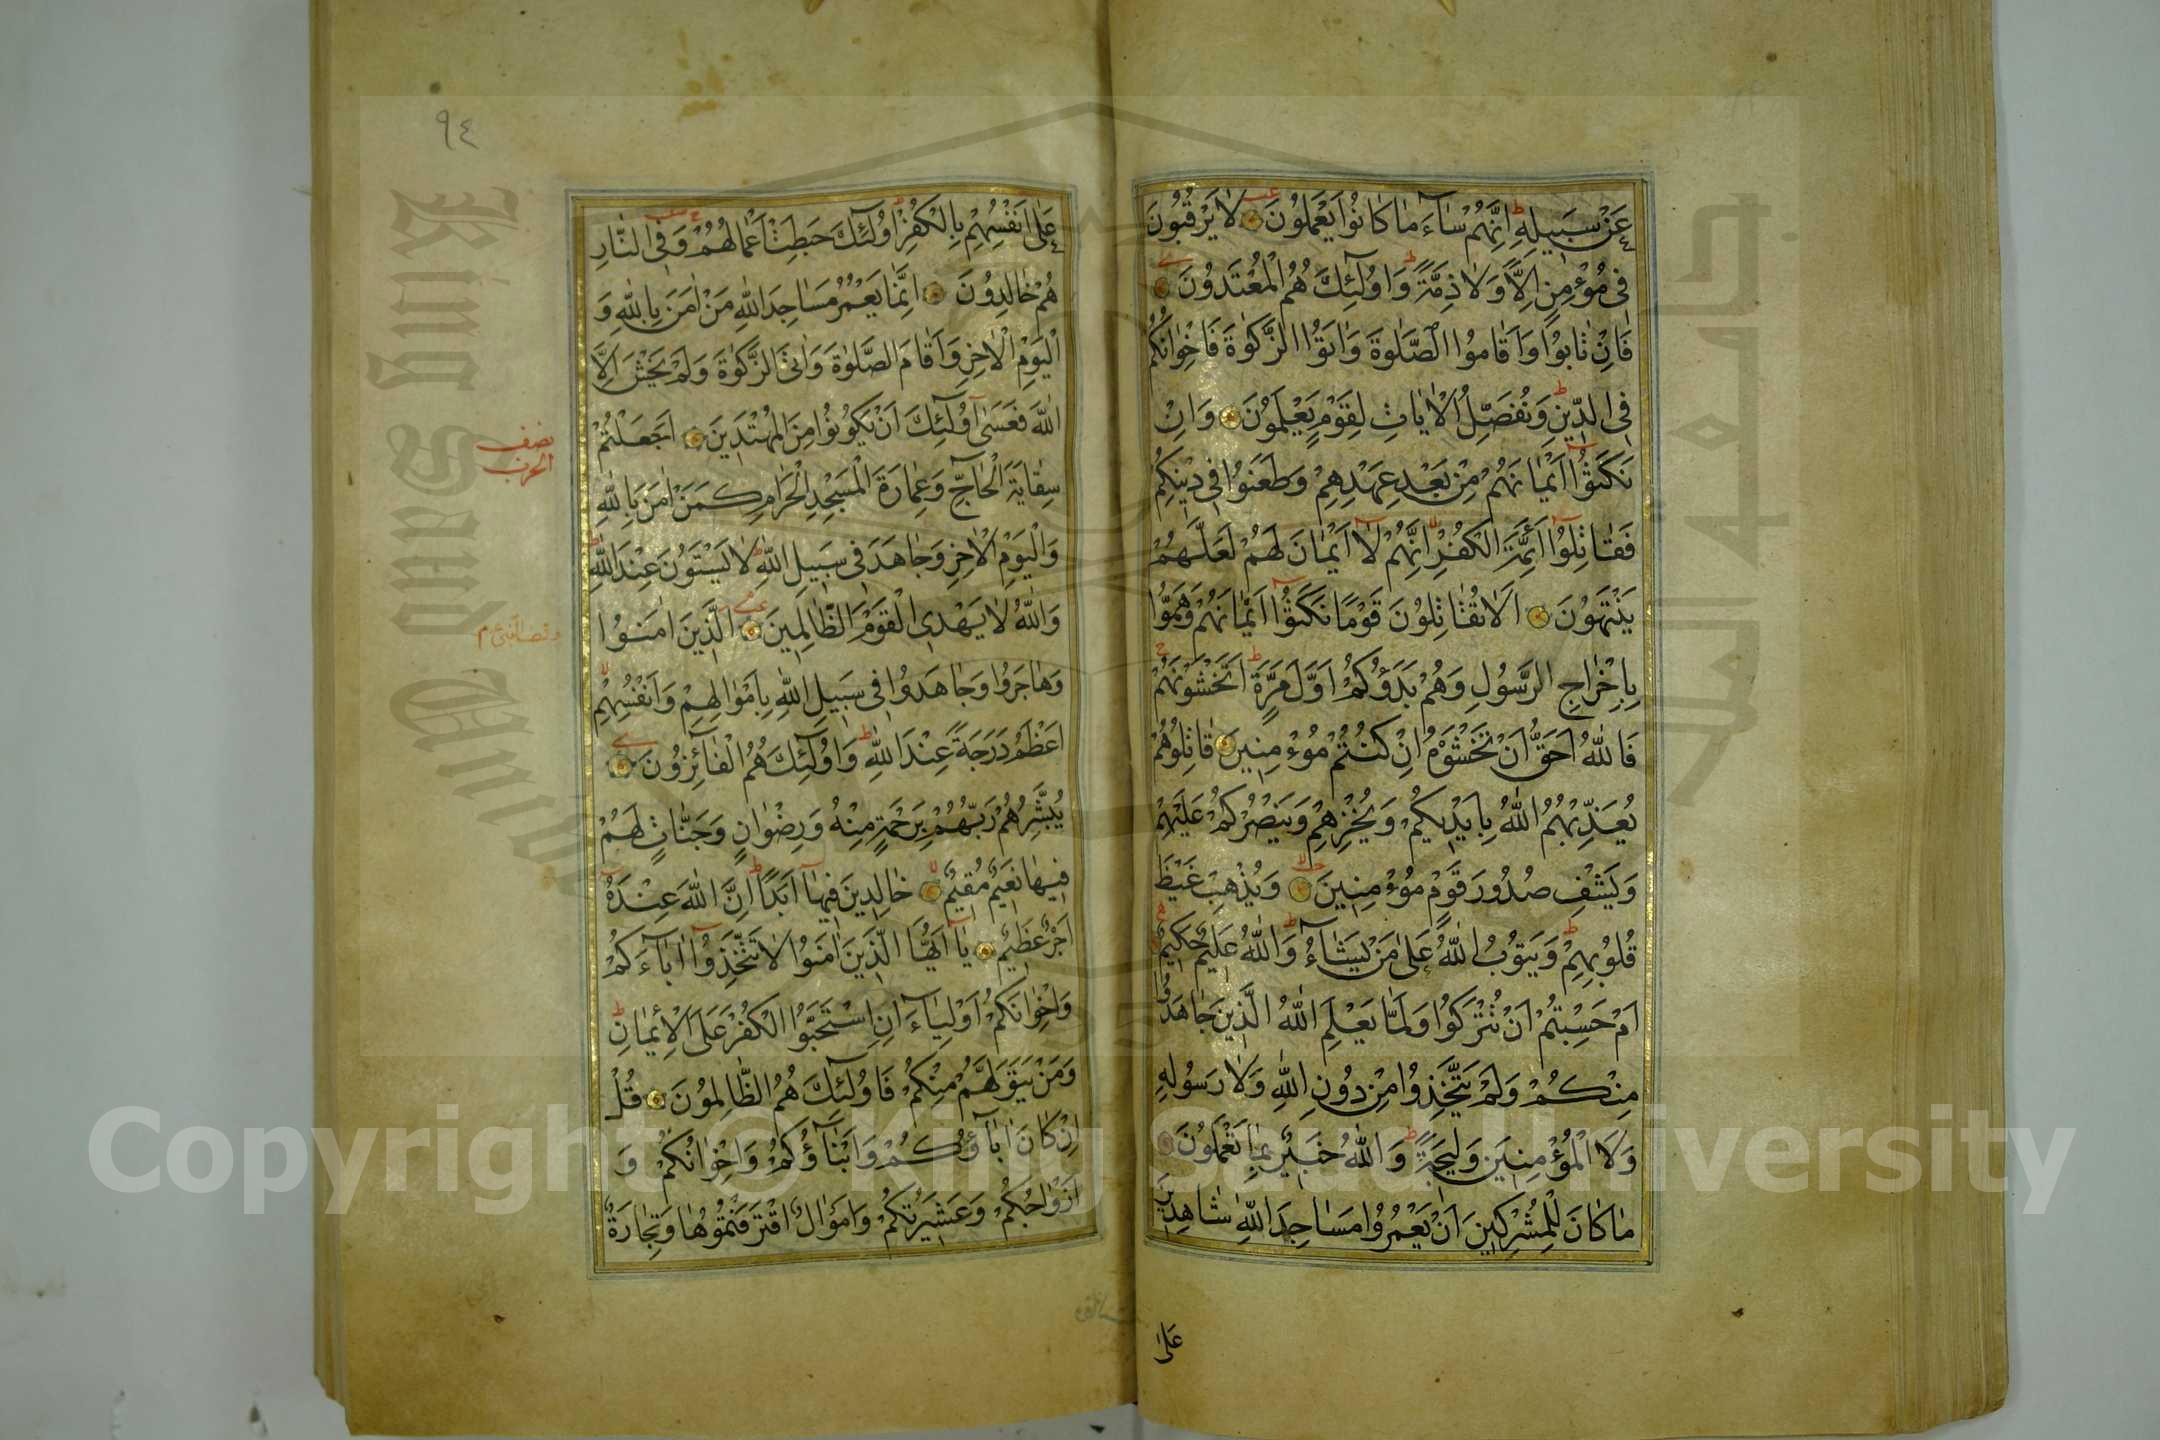 عَنْ سَبِيلِهِ اِنَّهُمْ سَآءَ مَا كَانُوا يَعْمَلُونَ لَا يَرْقُبُونَ
فِى مُؤْمِنٍ اِلًّا وَلَا ذِمَّةً وَاُولٰٓئِكَ هُمُ الْمُعْتَدُونَ
فَاِنْ تَابُوا وَاَقَامُوا الصَّلٰوةَ وَاٰتَوُا الزَّكٰوةَ فَاِخْوَانُكُمْ
فِى الدِّينِ وَنُفَصِّلُ الْاٰيَاتِ لِقَوْمٍ يَعْلَمُونَ وَاِنْ
نَكَثُوٓا اَيْمَانَهُمْ مِنْ بَعْدِ عَهْدِهِمْ وَطَعَنُوا فِى دِينِكُمْ
فَقَاتِلُوٓا اَئِمَّةَ الْكُفْرِ اِنَّهُمْ لَآ اَيْمَانَ لَهُمْ لَعَلَّهُمْ
يَنْتَهُونَ اَلَا تُقَاتِلُونَ قَوْمًا نَكَثُوٓا اَيْمَانَهُمْ وَهَمُّوا
بِاِخْرَاجِ الرَّسُولِ وَهُمْ بَدَؤُكُمْ اَوَّلَ مَرَّةٍ اَتَخْشَوْنَهُمْ
فَاللّٰهُ اَحَقُّ اَنْ تَخْشَوْهُ اِنْ كُنْتُمْ مُؤْمِنِينَ قَاتِلُوهُمْ
يُعَذِّبْهُمُ اللّٰهُ بِاَيْدِيكُمْ وَيُخْزِهِمْ وَيَنْصُرْكُمْ عَلَيْهِمْ
وَيَشْفِ صُدُورَ قَوْمٍ مُؤْمِنِينَ وَيُذْهِبْ غَيْظَ
قُلُوبِهِمْ وَيَتُوبُ اللّٰهُ عَلٰى مَنْ يَشَآءُ وَاللّٰهُ عَلِيمٌ حَكِيمٌ
اَمْ حَسِبْتُمْ اَنْ تُتْرَكُوا وَلَمَّا يَعْلَمِ اللّٰهُ الَّذِينَ جَاهَدُوا
مِنْكُمْ وَلَمْ يَتَّخِذُوا مِنْ دُونِ اللّٰهِ وَلَا رَسُولِهِ
وَلَا الْمُؤْمِنِينَ وَلِيجَةً وَاللّٰهُ خَبِيرٌ بِمَا تَعْمَلُونَ
مَا كَانَ لِلْمُشْرِكِينَ اَنْ يَعْمُرُوا مَسَاجِدَ اللّٰهِ شَاهِدِينَ
عَلٰى
٩٤
عَلٰٓى اَنْفُسِهِمْ بِالْكُفْرِ اُولٰٓئِكَ حَبِطَتْ اَعْمَالُهُمْ وَفِى النَّارِ
هُمْ خَالِدُونَ اِنَّمَا يَعْمُرُ مَسَاجِدَ اللّٰهِ مَنْ اٰمَنَ بِاللّٰهِ وَ
الْيَوْمِ الْاٰخِرِ وَاَقَامَ الصَّلٰوةَ وَاٰتَى الزَّكٰوةَ وَلَمْ يَخْشَ اِلَّا
اللّٰهَ فَعَسٰٓى اُولٰٓئِكَ اَنْ يَكُونُوا مِنَ الْمُهْتَدِينَ اَجَعَلْتُمْ
سِقَايَةَ الْحَآجِّ وَعِمَارَةَ الْمَسْجِدِ الْحَرَامِ كَمَنْ اٰمَنَ بِاللّٰهِ
وَالْيَوْمِ الْاٰخِرِ وَجَاهَدَ فِى سَبِيلِ اللّٰهِ لَا يَسْتَوُونَ عِنْدَ اللّٰهِ
وَاللّٰهُ لَا يَهْدِى الْقَوْمَ الظَّالِمِينَ اَلَّذِينَ اٰمَنُوا
وَهَاجَرُوا وَجَاهَدُوا فِى سَبِيلِ اللّٰهِ بِاَمْوَالِهِمْ وَاَنْفُسِهِمْ
اَعْظَمُ دَرَجَةً عِنْدَ اللّٰهِ وَاُولٰٓئِكَ هُمُ الْفَآئِزُونَ
يُبَشِّرُهُمْ رَبُّهُمْ بِرَحْمَةٍ مِنْهُ وَرِضْوَانٍ وَجَنَّاتٍ لَهُمْ
فِيهَا نَعِيمٌ مُقِيمٌ خَالِدِينَ فِيهَآ اَبَدًا اِنَّ اللّٰهَ عِنْدَهُٓ
اَجْرٌ عَظِيمٌ يَآ اَيُّهَا الَّذِينَ اٰمَنُوا لَا تَتَّخِذُوٓا اٰبَآءَكُمْ
وَاِخْوَانَكُمْ اَوْلِيَآءَ اِنِ اسْتَحَبُّوا الْكُفْرَ عَلَى الْاِيمَانِ
وَمَنْ يَتَوَلَّهُمْ مِنْكُمْ فَاُولٰٓئِكَ هُمُ الظَّالِمُونَ قُلْ
اِنْ كَانَ اٰبَآؤُكُمْ وَاَبْنَآؤُكُمْ وَاِخْوَانُكُمْ وَ
اَزْوَاجُكُمْ وَعَشِيرَتُكُمْ وَاَمْوَالٌ اقْتَرَفْتُمُوهَا وَتِجَارَةٌ
نصف
الحزب
King Saud University
جامعة الملك
Copyright © King Saud University